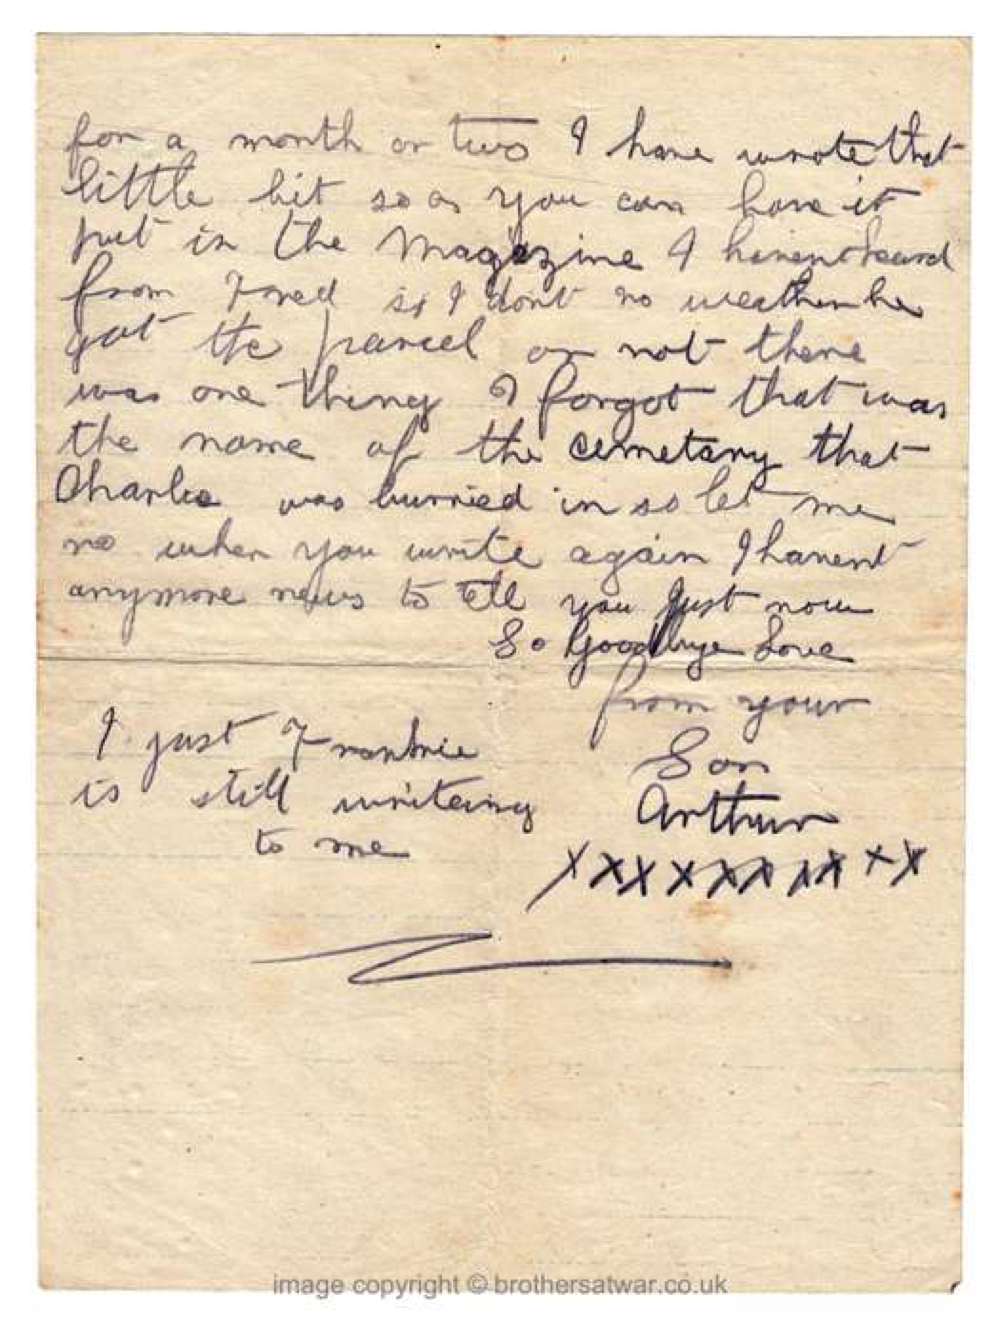 for a month or two I have wrote that
little bit so as you can have it
put in the Magazine I havent heard
from Fred so I dont no weather he
got the parcel or not there
was one thing I forgot that was
the name of the cemetary that
Charlie was burried in so let me
no when you write again I havent
anymore news to tell you just now
So Goodbye Love
from your
Son
Arthur
xxxxxxxxxx
I just
is still writeing
to me
image copyright © brothersatwar.co.uk